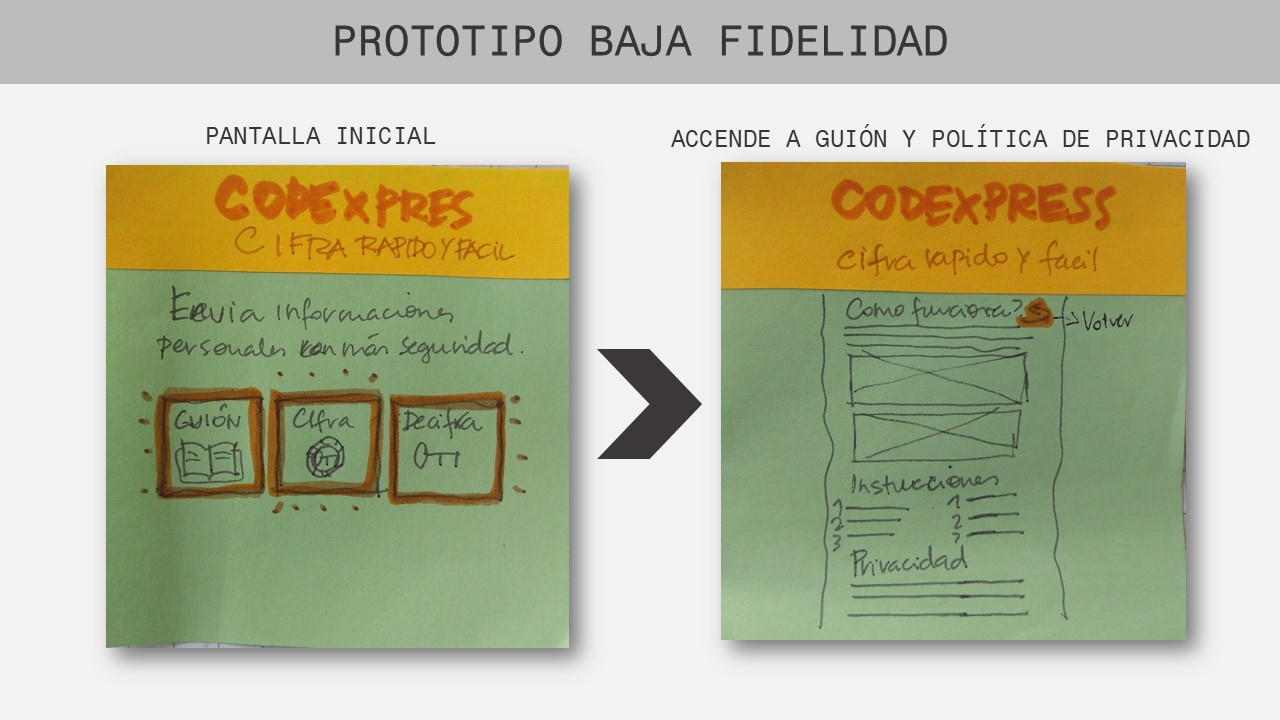 PROTOTIPO BAJA FIDELIDAD
PANTALLA INICIAL
CODEXPRES
CIFRA RAPIDO Y FACIL
Envia informaciones
personales con más seguridad.
GUIÓN
Cifra
Decifra
ACCENDE A GUIÓN Y POLÍTICA DE PRIVACIDAD
CODEXPRESS
cifra rapido y facil
Como funciona?
Volver
Instucciones
1 1
2 2
3 3
Privacidad